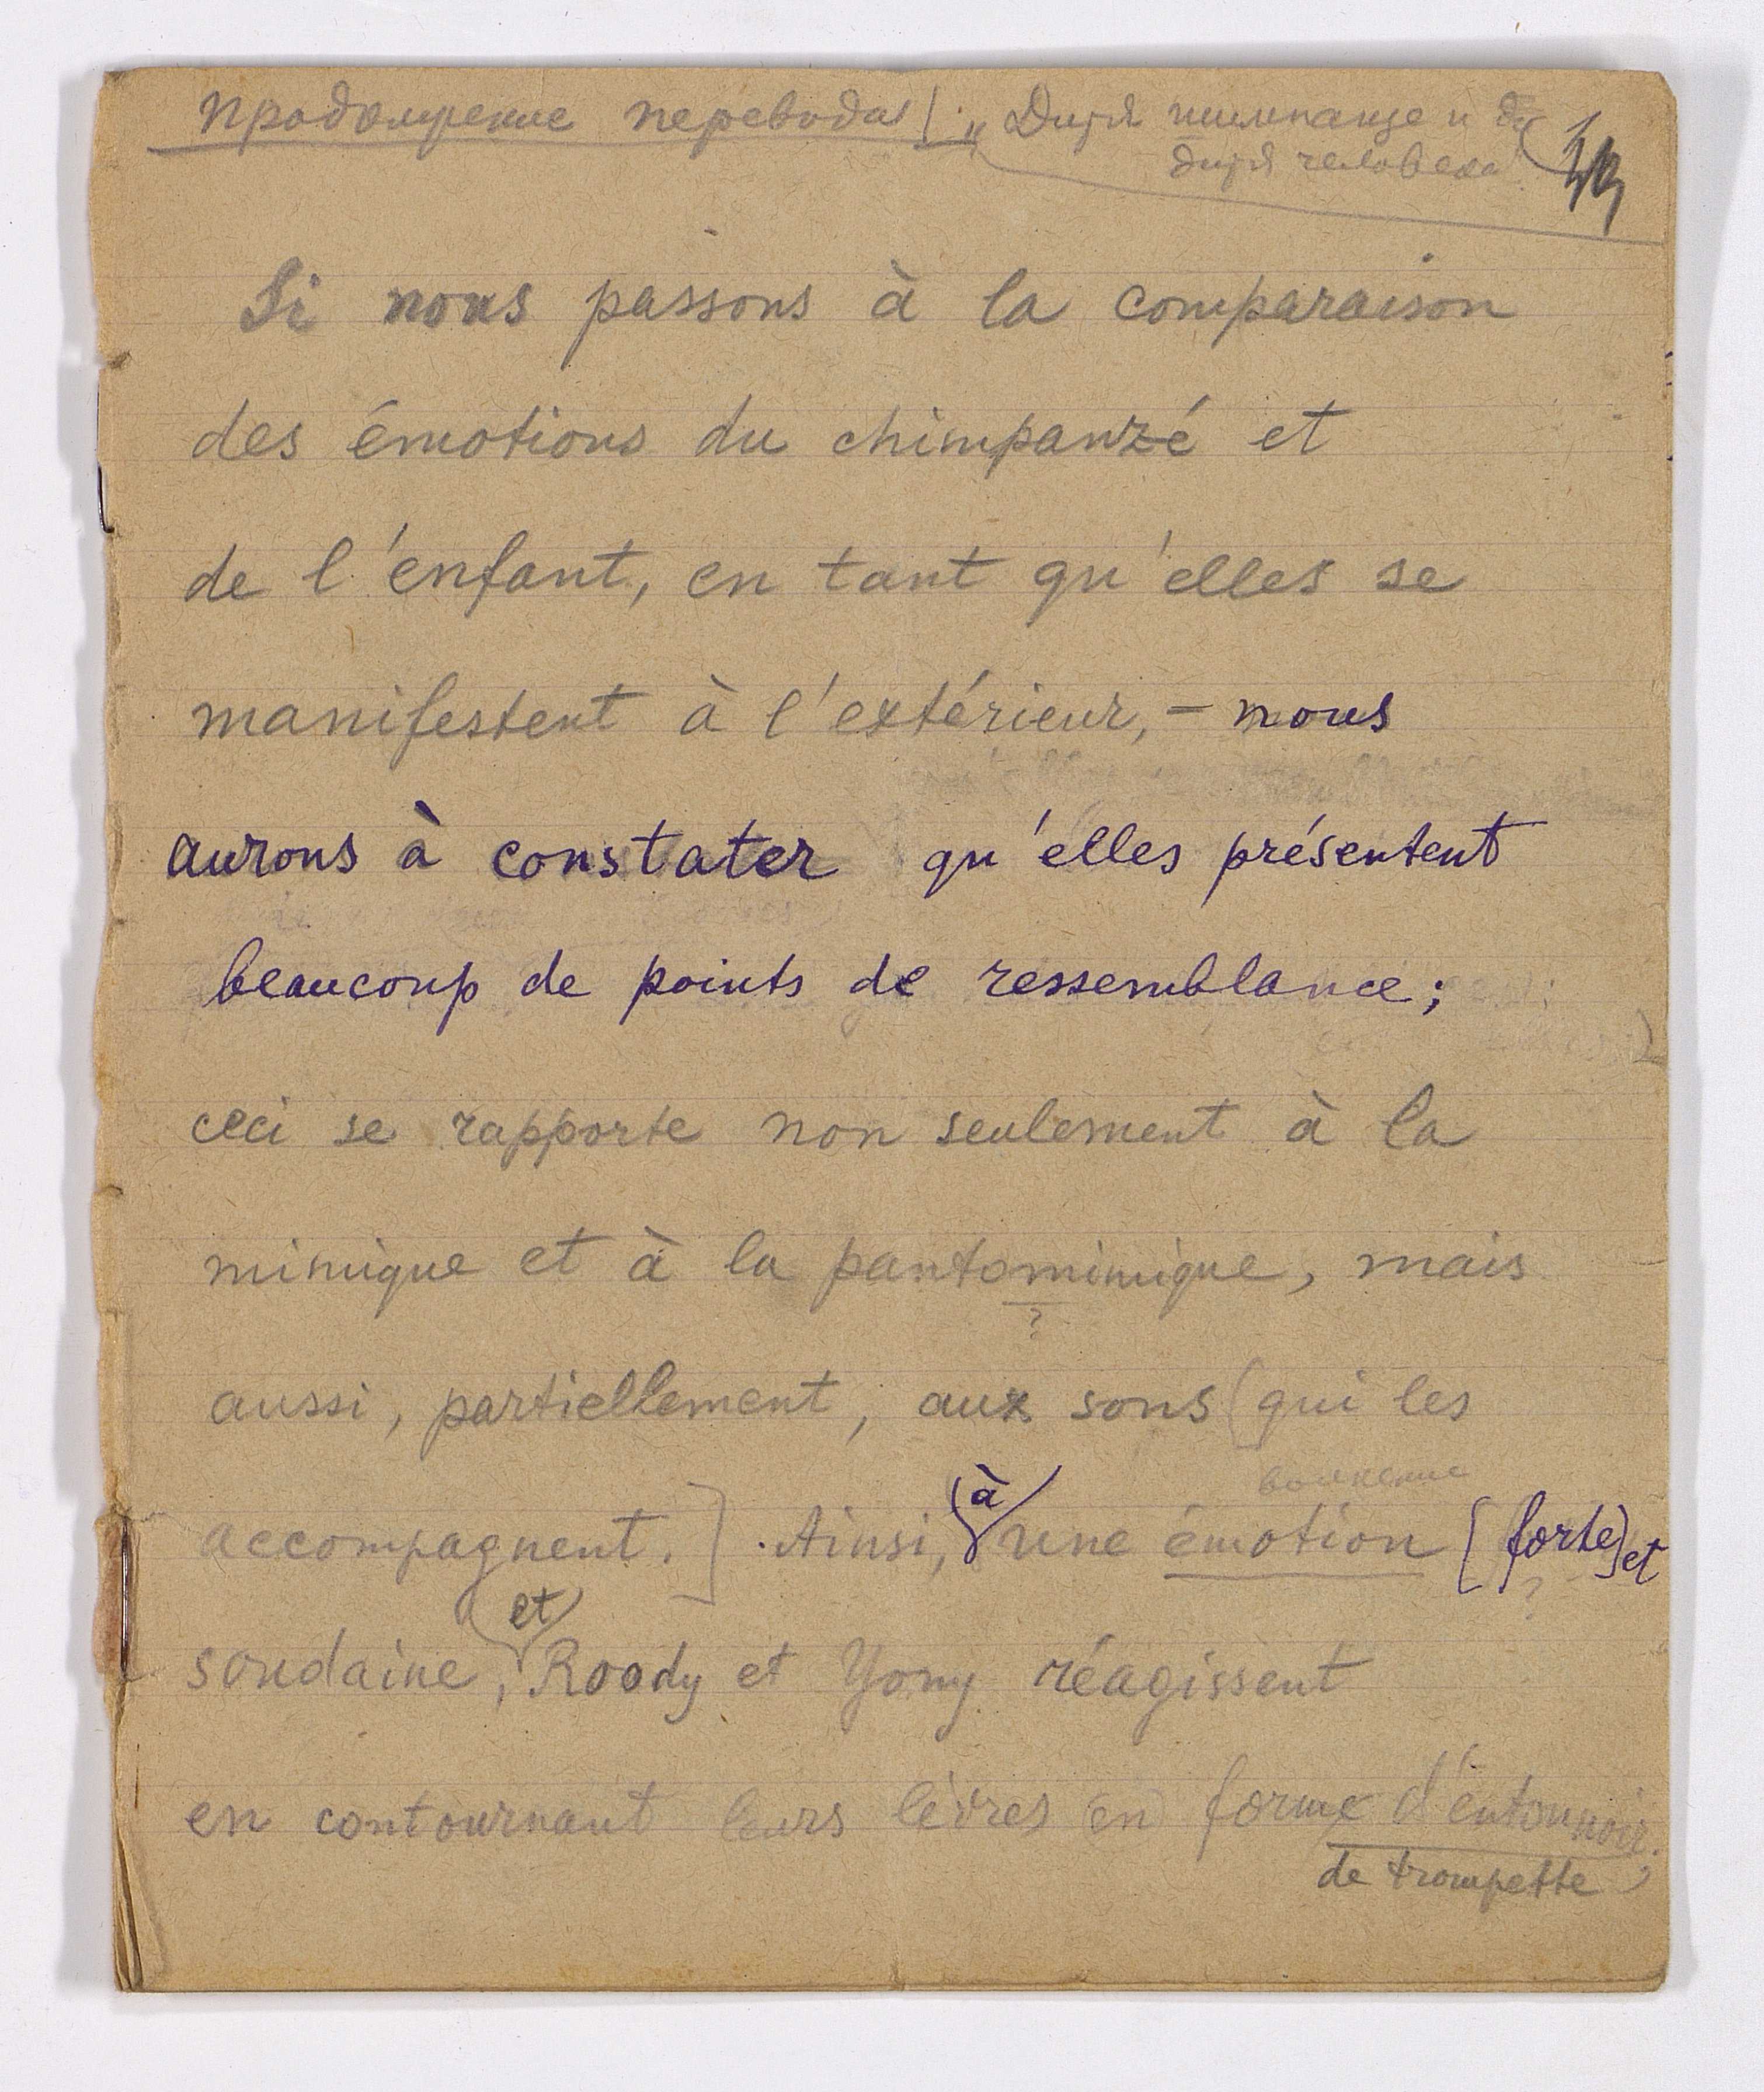 продолжение перевода „Дитя шимпанзе и
дитя человека“
Si nous passons à la comparaison
des émotions du chimpanzé et
de l'enfant, en tant qu'elles se
manifestent à l'extérieur, – nous
aurons à constater qu'elles présentent
beaucoup de points de ressemblance;
ceci se rapporte non seulement à la
mimique et à la pantomimique, mais
?
aussi, partiellement, aux sons (qui les
accompagnent.] . Ainsi, (à) une émotion [forte] et
?
et
soudaine, Roody et Yony réagissent
en contournant leurs lèvres (en) forme d'entonnoir.
de trompette